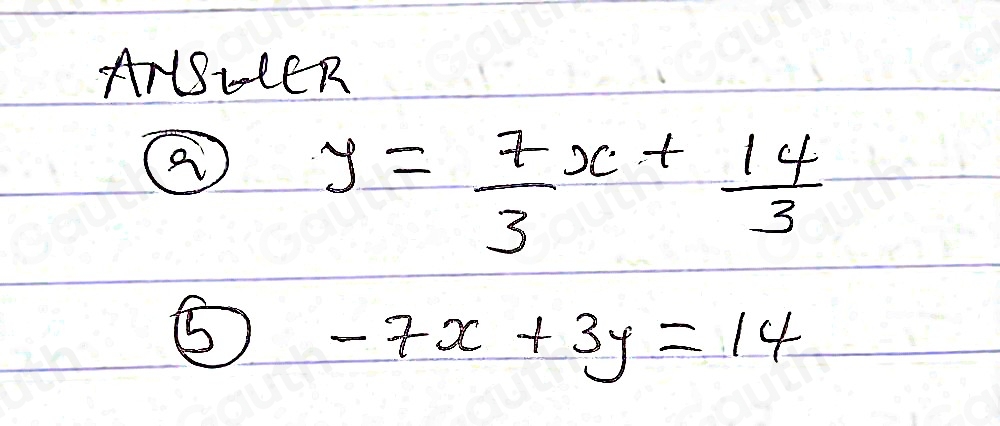 ANSWER
(a) y = 7/3 x + 14/3
(b) -7x + 3y = 14